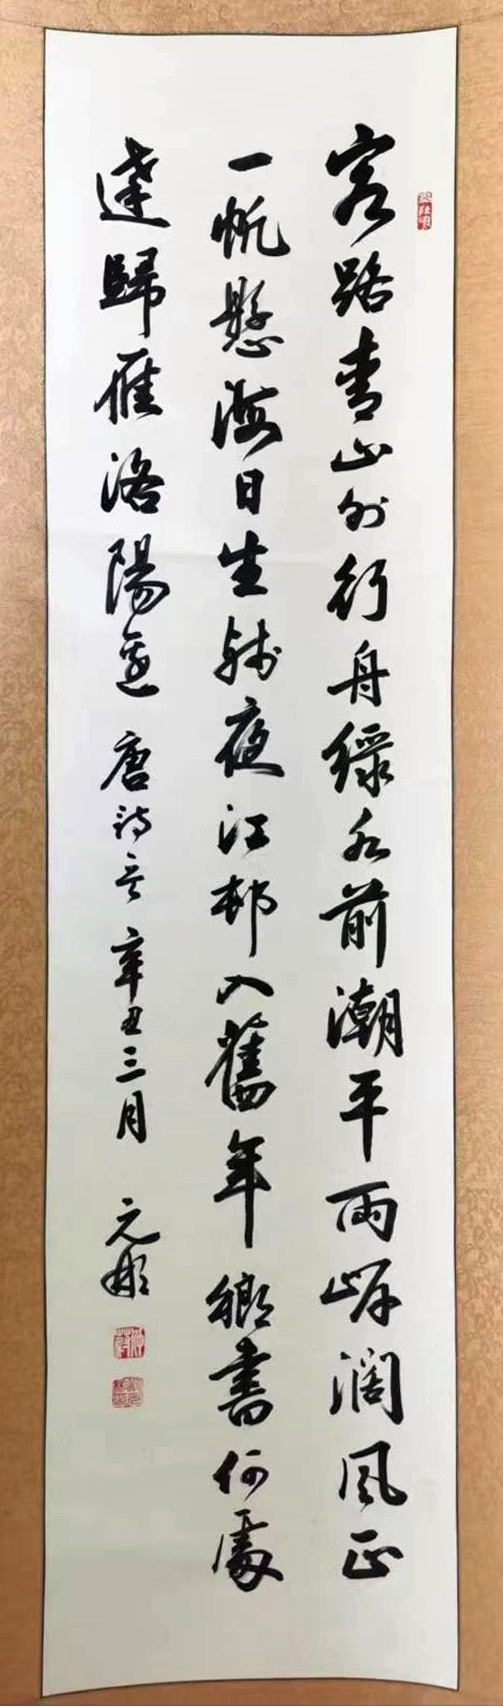 客路青山外行舟緑水前潮平兩岸濶風正
一帆懸海日生残夜江邨入舊年鄉書何處
達歸雁洛陽邊 唐詩言 辛丑三月 元彬